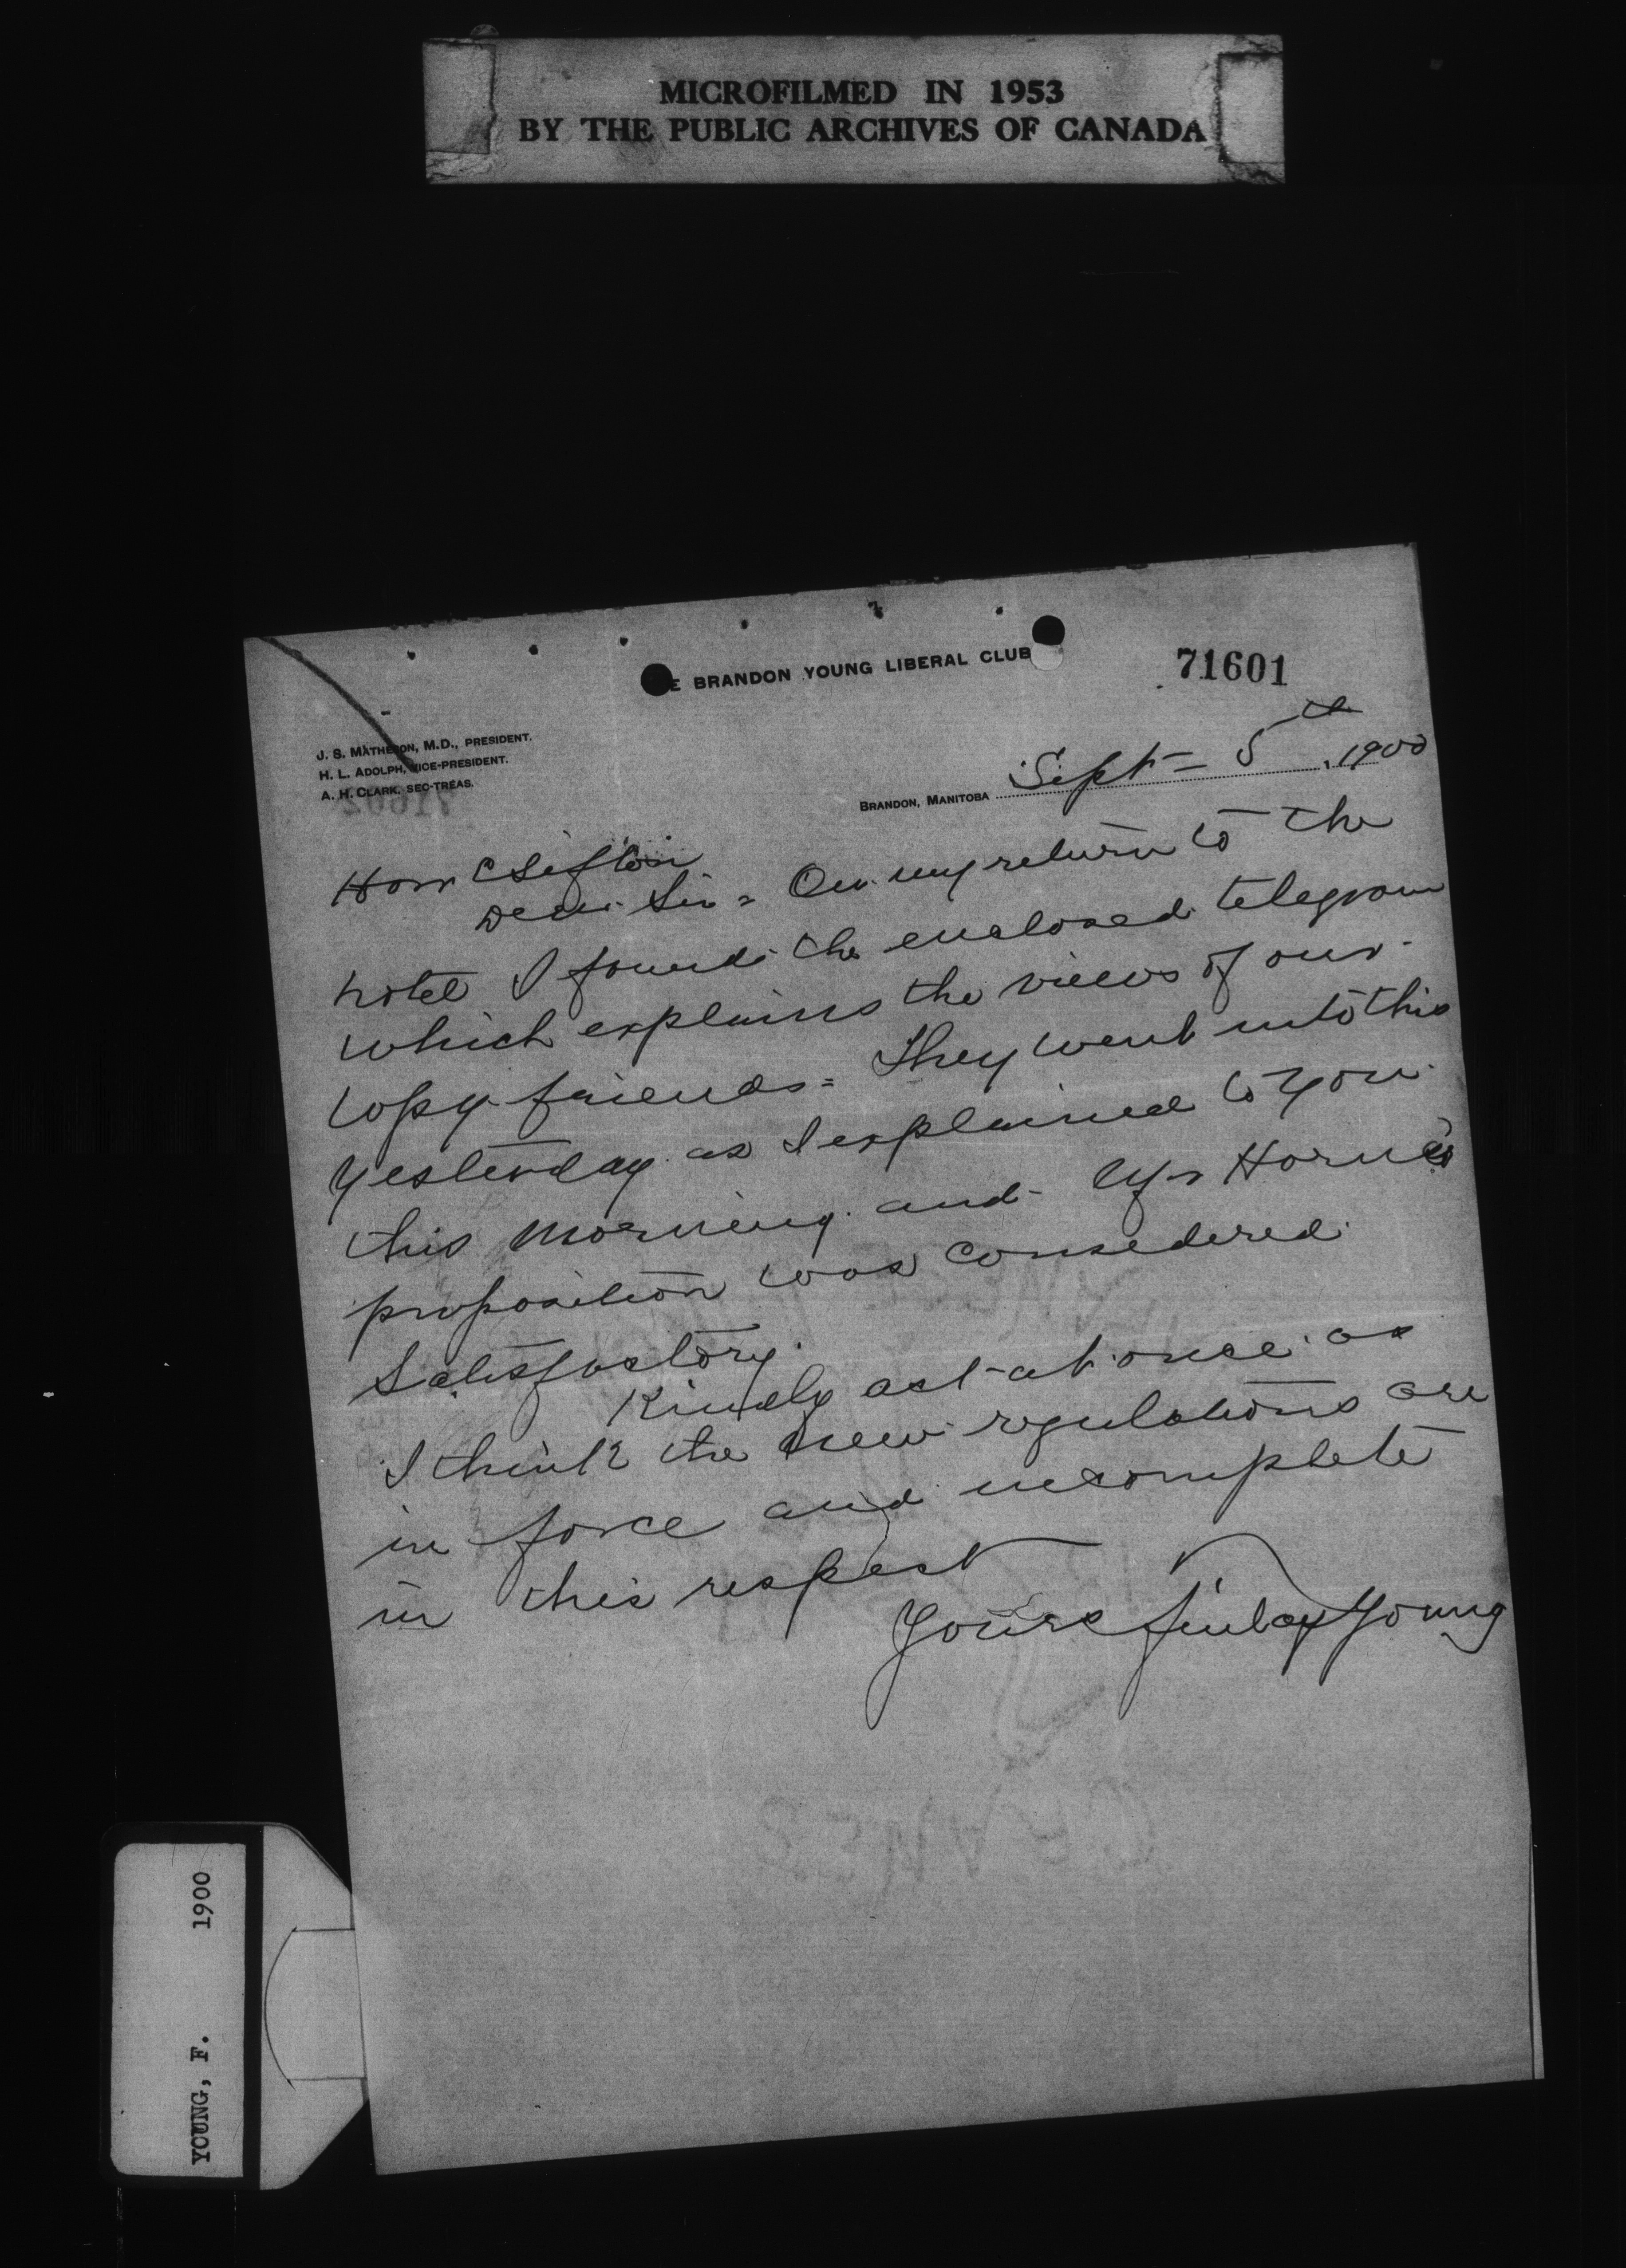 MICROFILMED IN 1953
BY THE PUBLIC ARCHIVES OF CANADA
E BRANDON YOUNG LIBERAL CLUB
71601
J. S. MATHESON, M.D., PRESIDENT.
H. L. ADOLPH, VICE-PRESIDENT.
A. H. CLARK, SEC-TREAS.
BRANDON, MANITOBA Sept - 5th 1900
Hon C Sifton
Dear Sir = On my return to the
hotel I found the enclosed telegram
which explains the views of our
friends = They went into this
yesterday as I explained to you
this morning and Mr Horne's
proposition was considered
Satisfactory.
Kindly act at once as
I think the new regulations are
in force and incomplete
in this respect
Yours Finlay Young
YOUNG, F. 1900